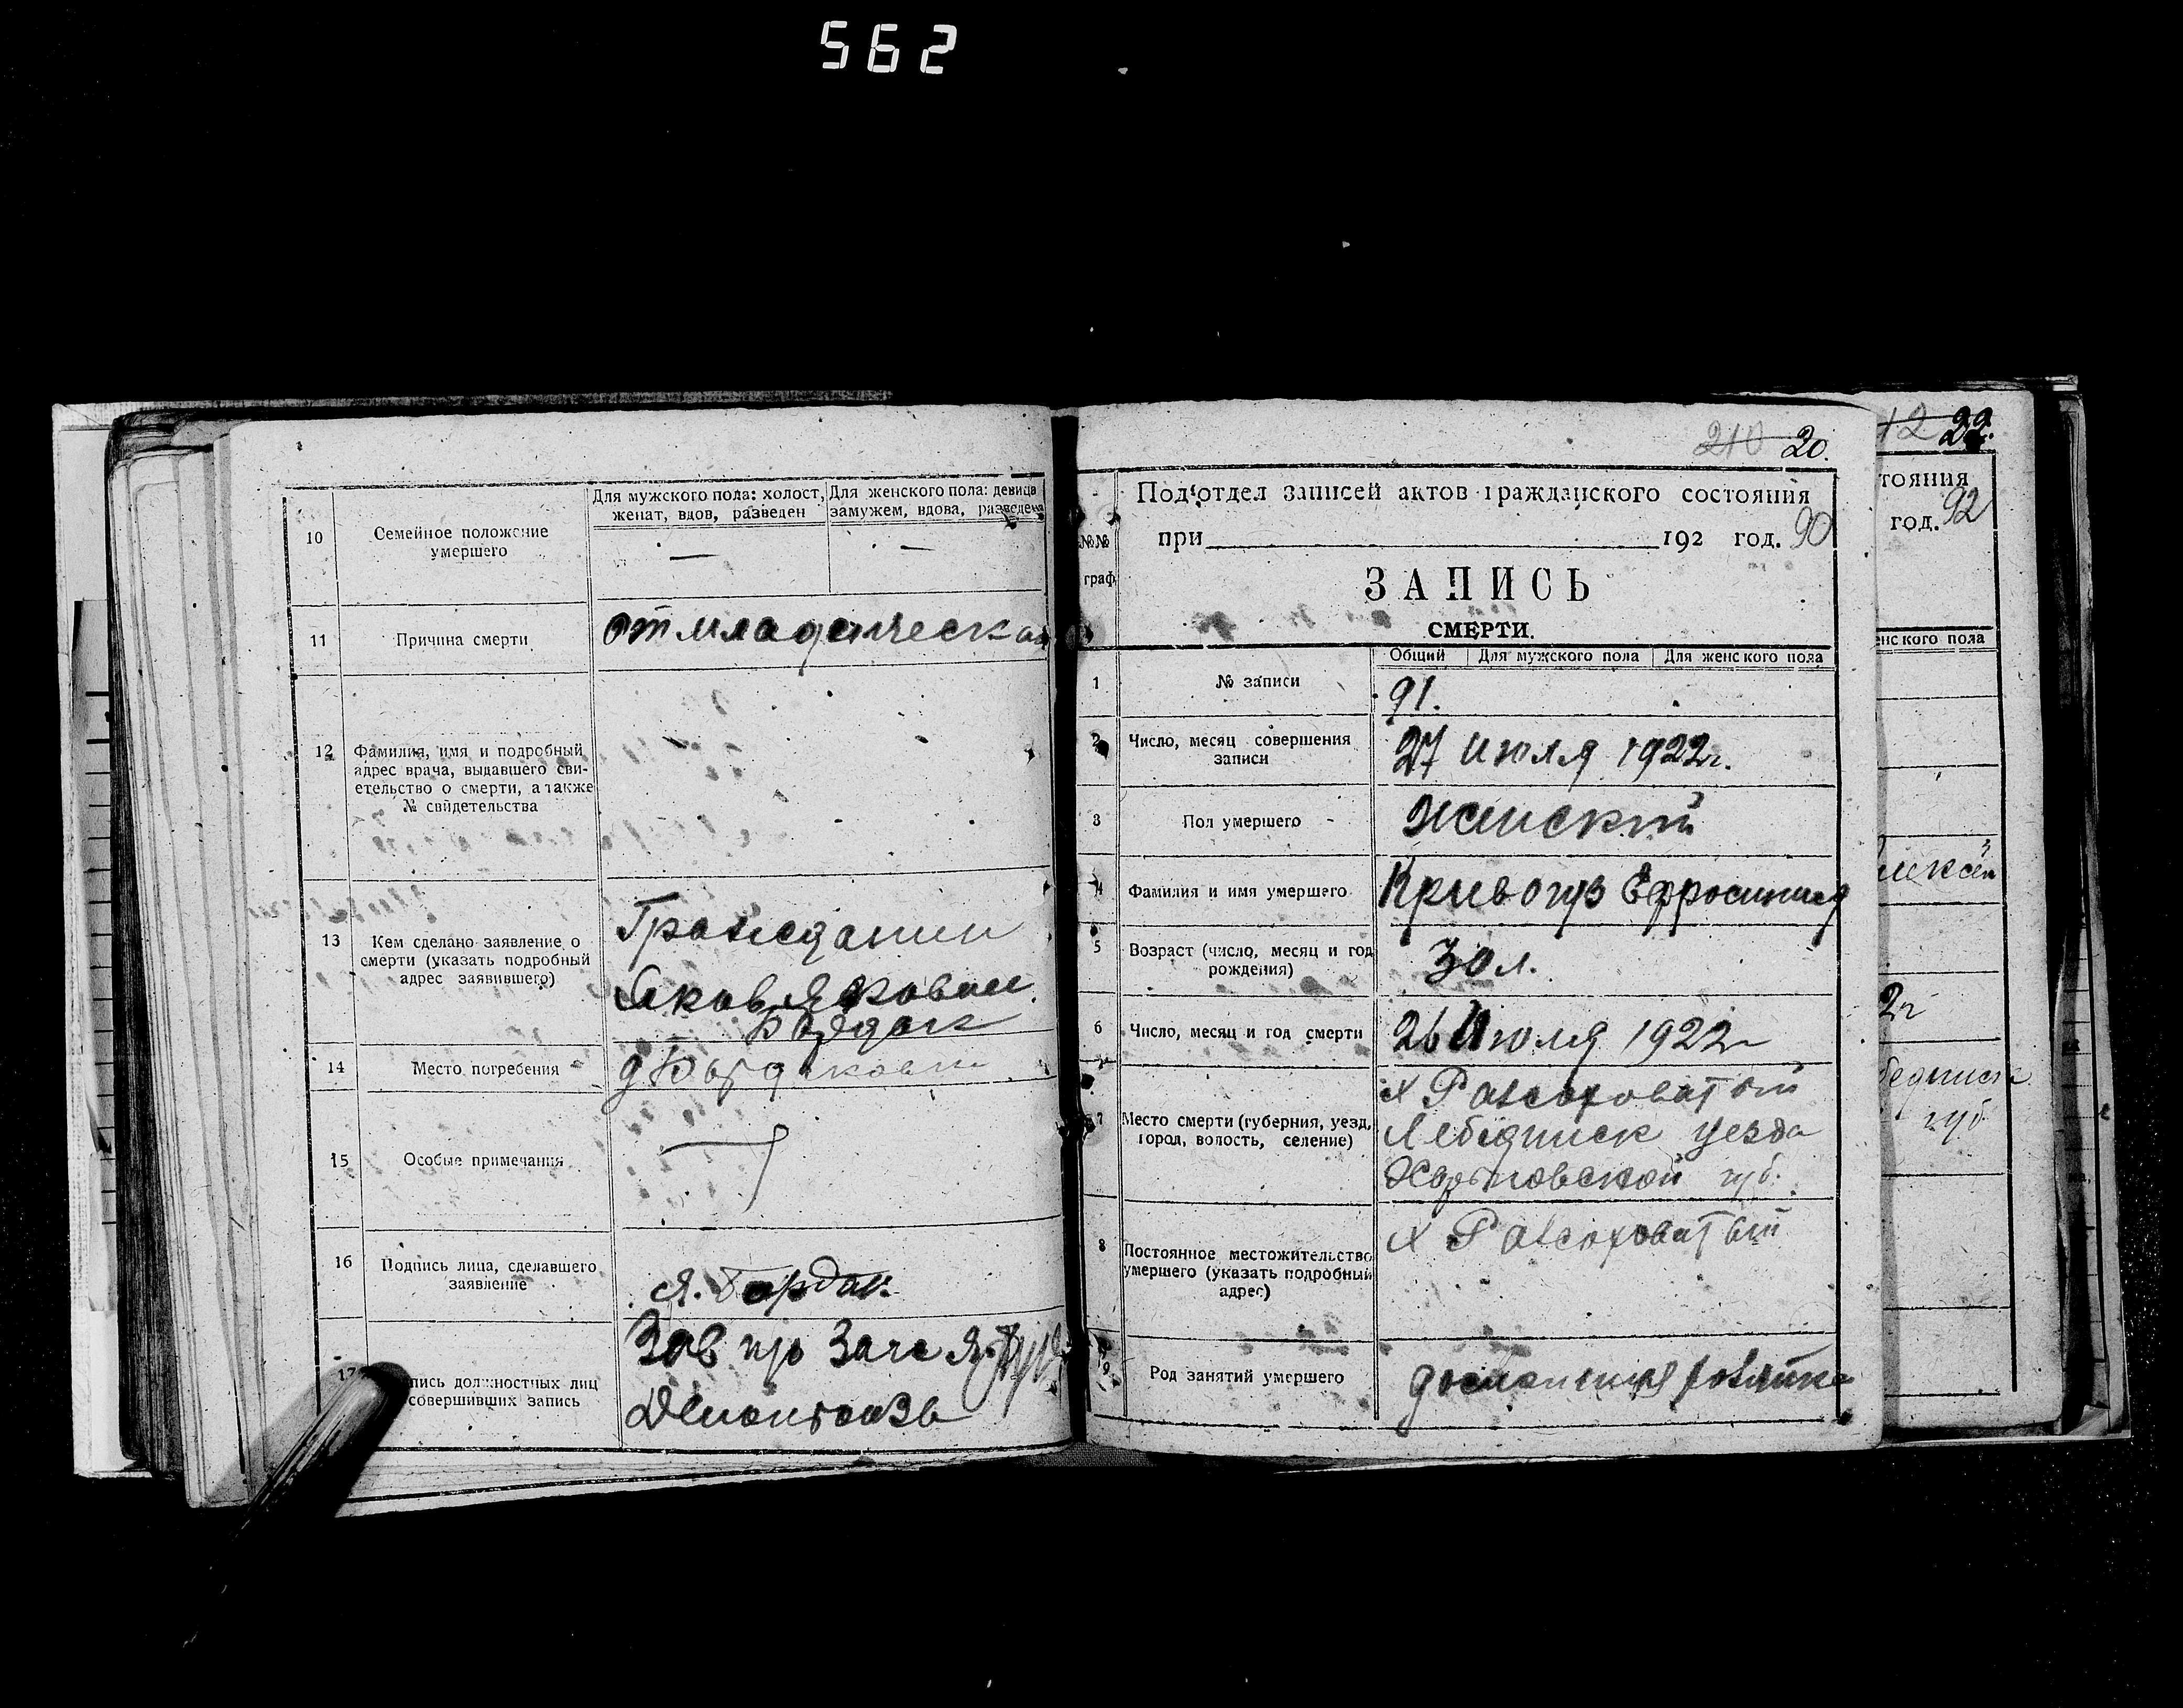 562
10
Семейное положение
умершего
Для мужского пола: холост,
женат, вдов, разведен
Для женского пола: девица
замужем, вдова, разведена
—
—
11
Причина смерти
от младенческая
12
Фамилия, имя и подробный
адрес врача, выдавшего сви-
етельство о смерти, а также
№ свидетельства
13
Кем сделано заявление о
смерти (указать подробный
адрес заявившего)
Гражданин
Яков Яковлев
14
Место погребения
15
Особые примечания
16
Подпись лица, сделавшего
заявление
Я. Бордак.
17
пись должностных лиц
совершивших запись
Зав п/о Загс
210 20.
№№
граф
Под'отдел записей актов гражданского состояния
при 192 год. 90
ЗАПИСЬ
СМЕРТИ.
Общий
Для мужского пола
Для женского пола
1
№ записи
91.
2
Число, месяц совершения
записи
27 июля 1922г.
3
Пол умершего
женский
4
Фамилия и имя умершего
Кривогуз Ефросиния
5
Возраст (число, месяц и год
рождения)
30 л.
6
Число, месяц и год смерти
26 Июля 1922г
7
Место смерти (губерния, уезд,
город, волость, селение)
х Рассоховатый
Лебединск уезда
Харьковской губ.
8
Постоянное местожительство
умершего (указать подробный
адрес)
х Рассоховатый
9
Род занятий умершего
домашняя хозяйка
12 22.
тояния
год. 92
енского пола
лексей
2г
бединск
губ